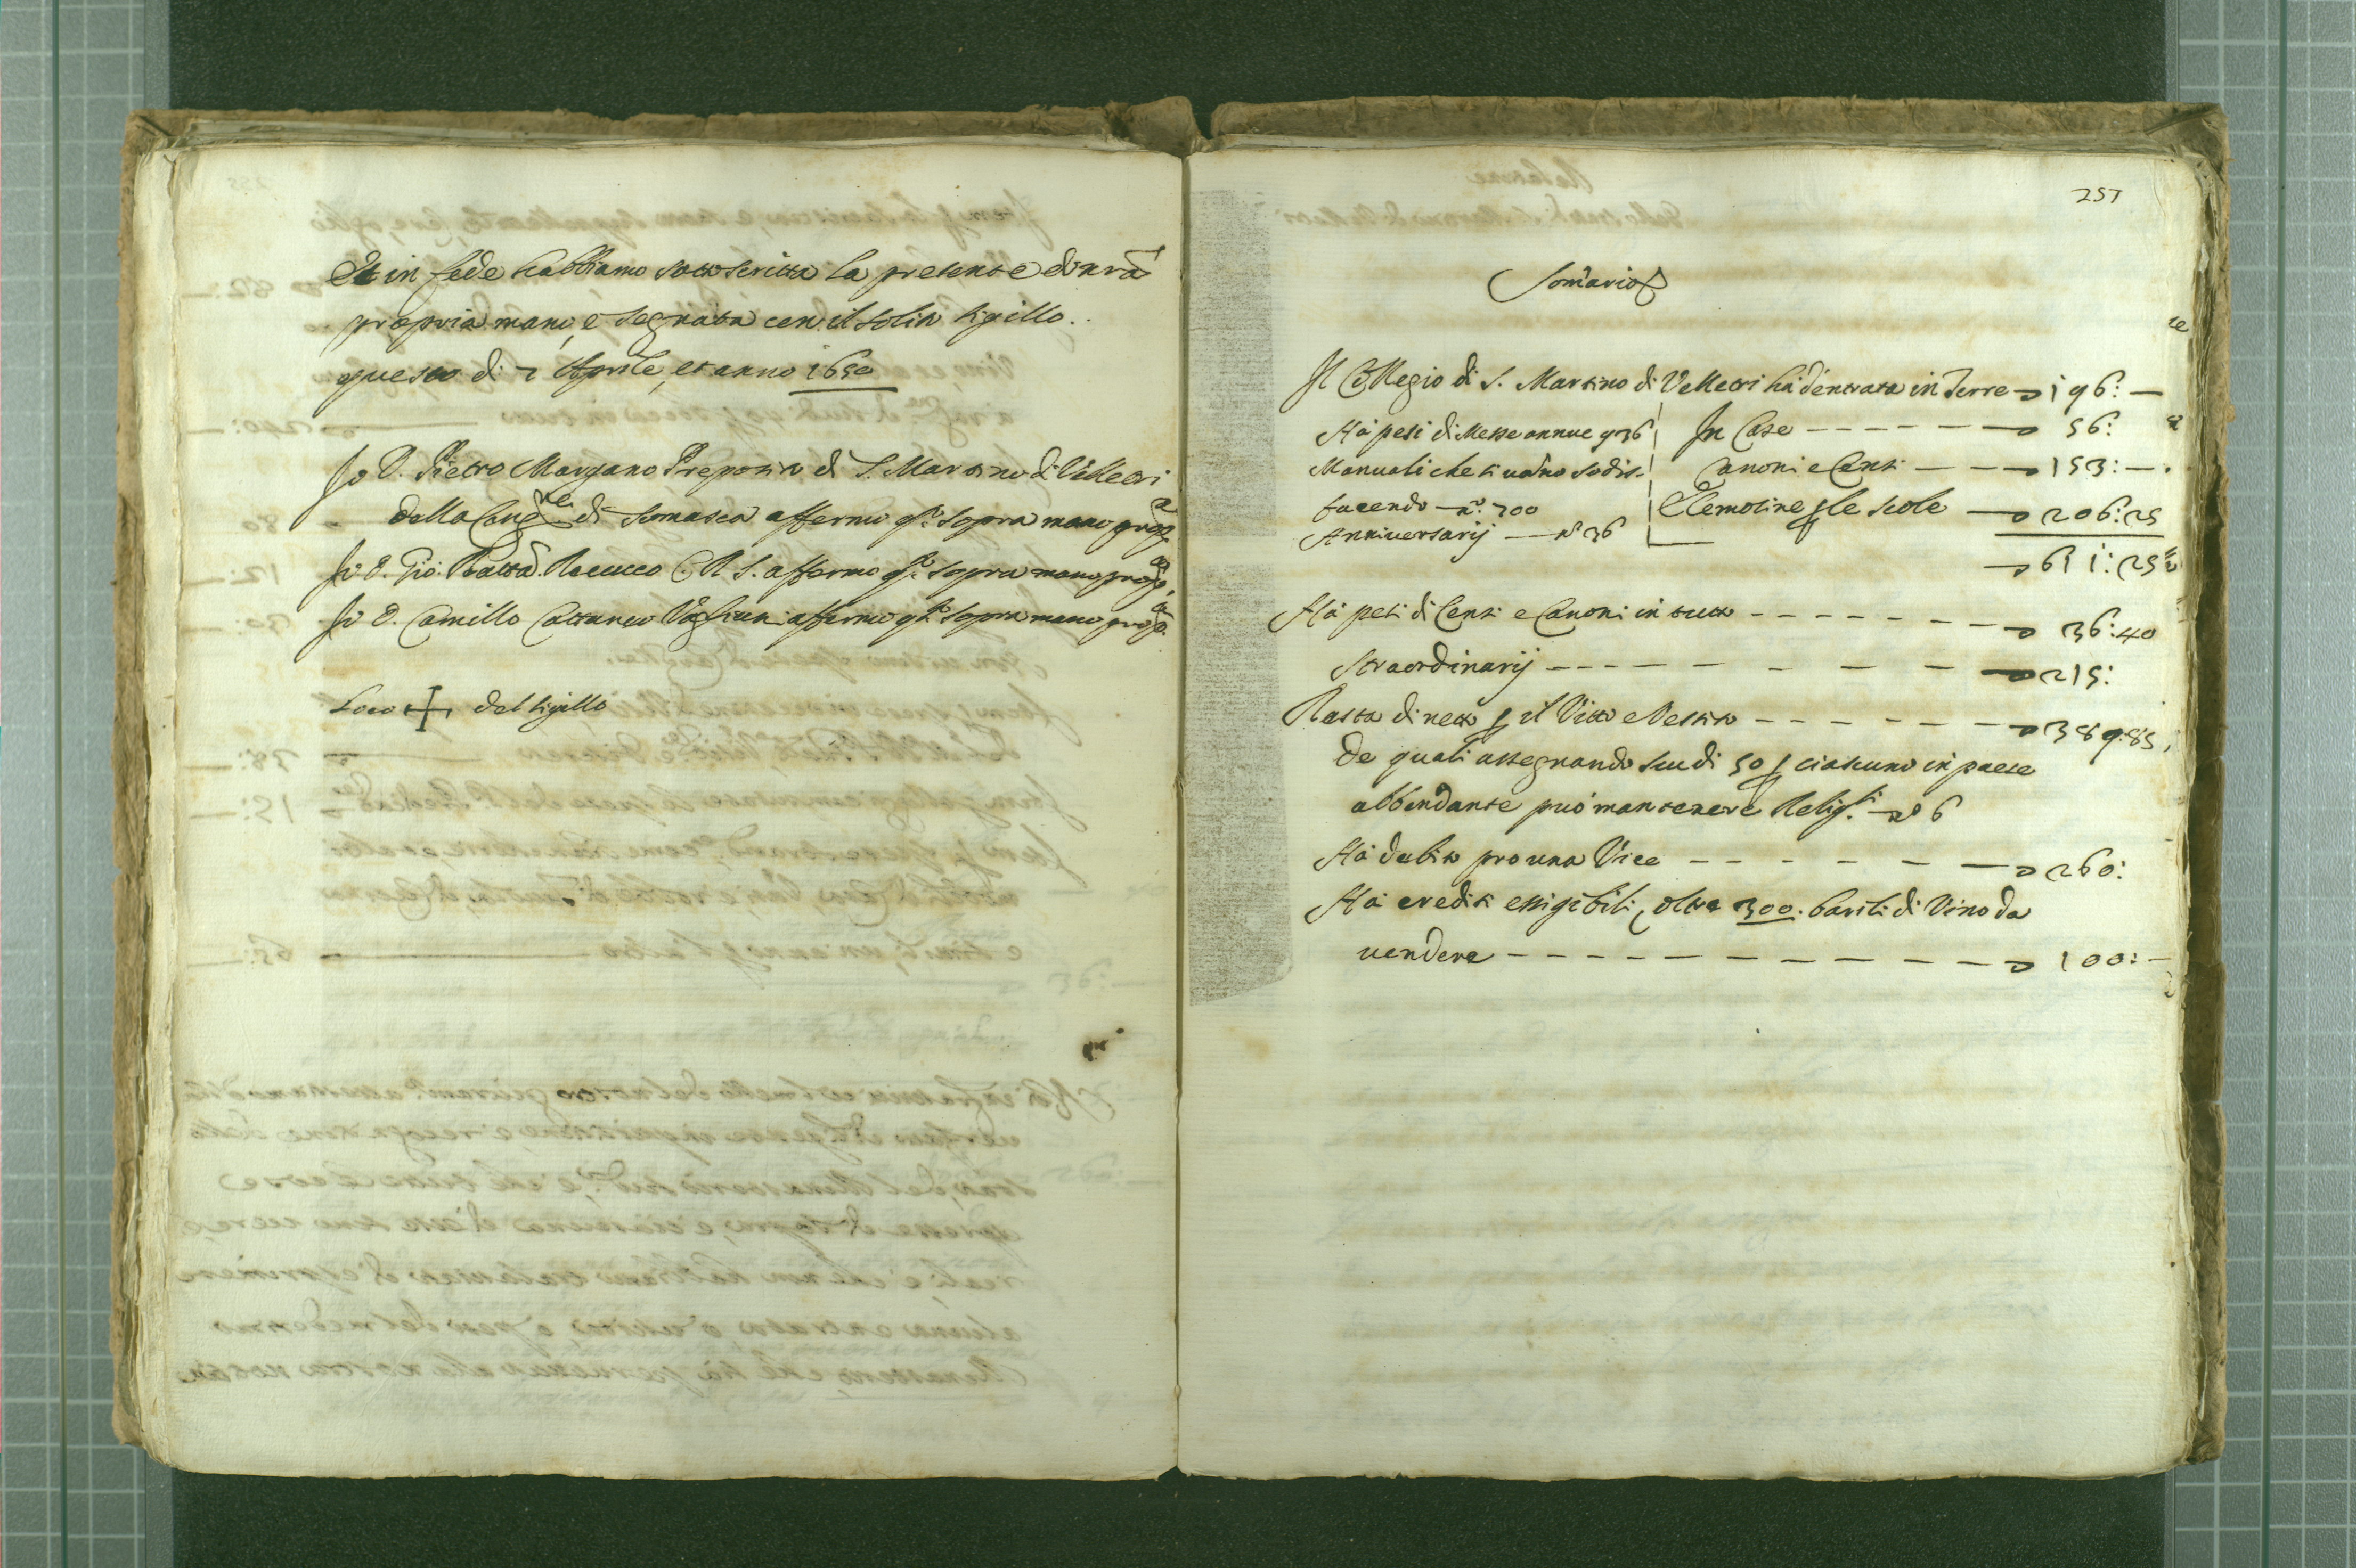 Et in fede habbiamo sottoscritta la presente di nrã
propria mano, e segnata con il solito sigillo.
questo di 7 Aprile, et anno 1650
Io D. Pietro Margano Preposito di S. Martino di Velletri
della Congne di Somasca affermo qto sopra mano propa
Io D. Gio: Batta C. R. S. affermo qto sopra mano propa
Io D. Camillo Cattaneo affermo qto sopra mano propa
Loco + del sigillo
257
Somario
Il Collegio di S. Martino di Velletri hà d'entrata in Terre 196: —
Hà pesi di Messe annue 936 | In Case 56:
Manuali che si vañno sodis- | Canoni e Censi 153: —
facendo — no. 700 | Elemosine p le scole 206:25
Anniversarij — no 36
611:25
Hà pesi di Censi e Canoni in tutto 36:40
Straordinarij 215:
Resta di netto p il Vitto e Vestito 389:85
De quali assegnando scudi 50 p ciascuno in paese
abbondante può mantenere Religsi. no 6
Hà debito pro una Vice 260:
Hà crediti essigibili, oltre 300. barili di Vino da
vendere 100: —